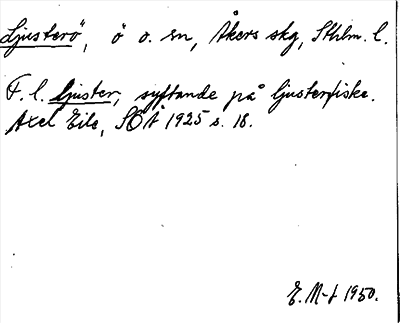 Ljusterö, ö o. sn, Åkers skg, Sthlm. l.
F. l. ljuster, syftande på ljusterfiske.
Axel Eile, SÖÅ 1925 s. 18.
E. M-t 1950.